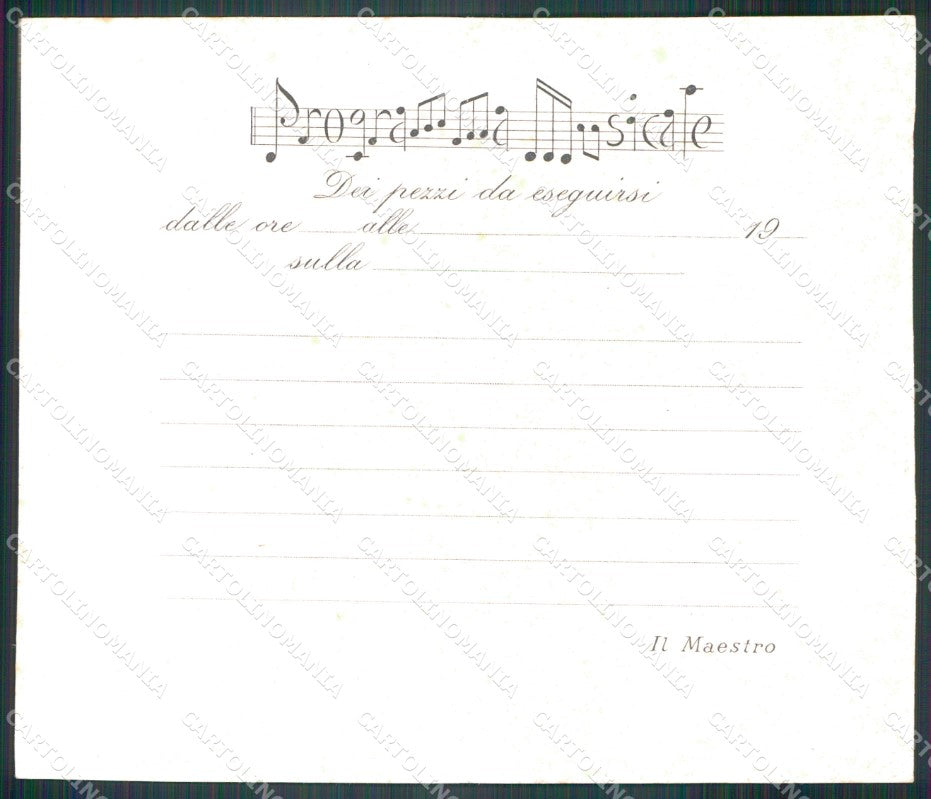 Programma Musicale
Dei pezzi da eseguirsi
dalle ore alle 19
sulla
Il Maestro
CARTOLINOMANIA